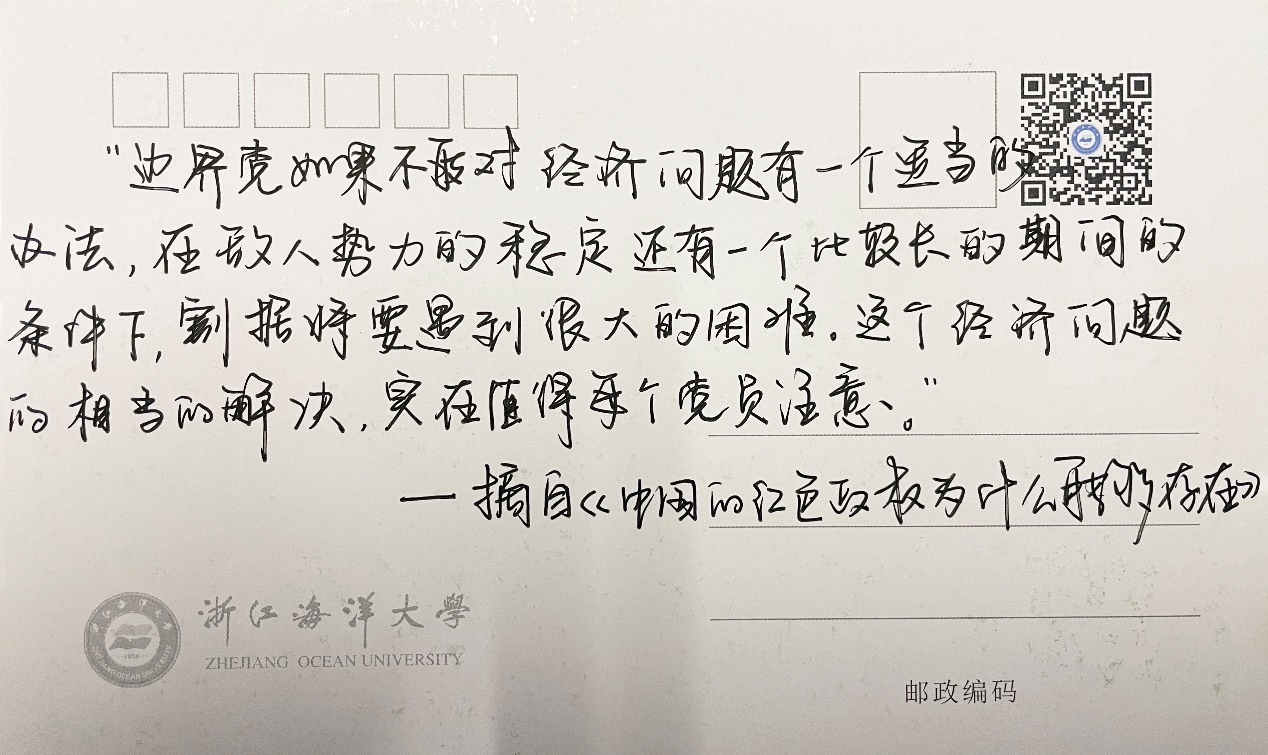 “边界党如果不能对经济问题有一个适当的
办法,在敌人势力的稳定还有一个比较长的期间的
条件下,割据将要遇到很大的困难。这个经济问题
的相当的解决,实在值得每个党员注意。”
— 摘自《中国的红色政权为什么能够存在》
浙江海洋大學
ZHEJIANG OCEAN UNIVERSITY
邮政编码